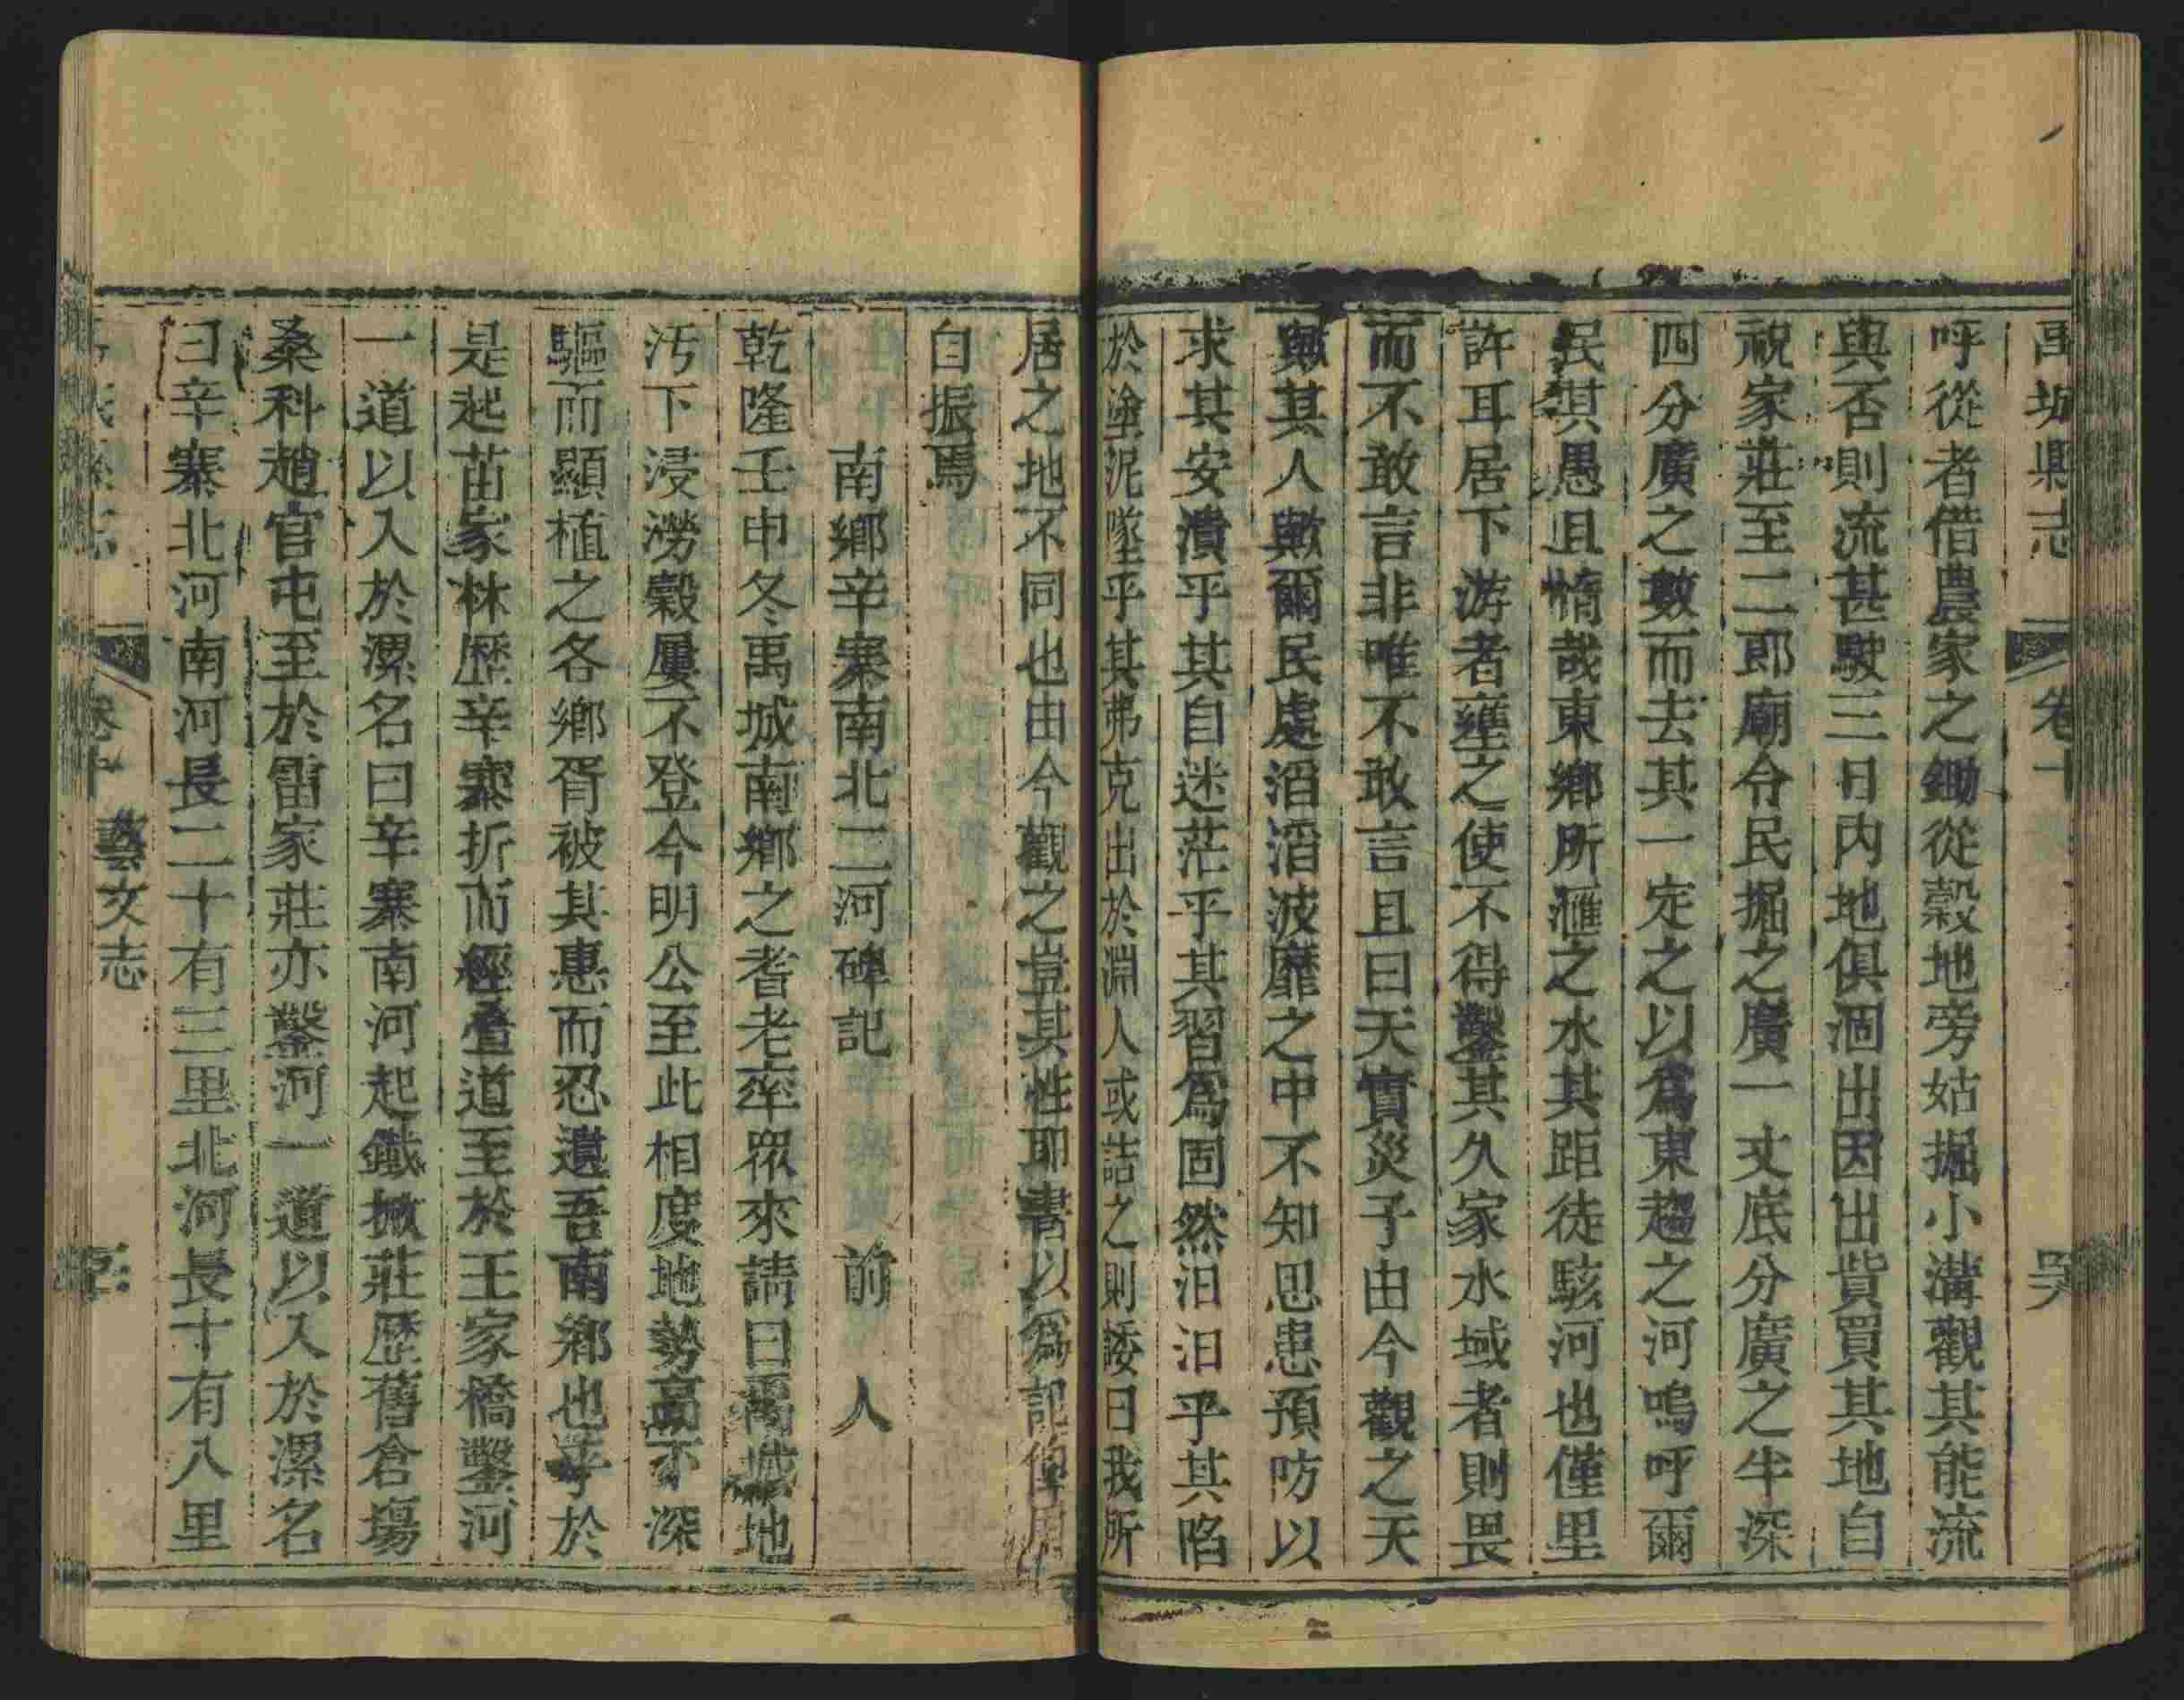 禹城縣志 卷十 哭
呼從者借農家之鋤從穀地旁姑掘小溝觀其能流
與否則流甚駛三日内地俱涸出因出貲買其地自
祝家莊至二郎廟令民掘之廣一丈底分廣之半深
四分廣之數而去其一定之以爲東趨之河嗚呼爾
民其愚且惰哉東鄉所滙之水其距徒駭河也僅里
許耳居下游者壅之使不得鑿其久家水域者則畏
而不敢言非唯不敢言且曰天實災子由今觀之天
歟其人歟爾民處滔滔波靡之中不知思患預防以
求其安潰乎其自迷茫乎其習爲固然汩汩乎其陷
於塗泥墜乎其弗克出於淵人或詰之則諉曰我所
居之地不同也由今觀之豈其性耶書以爲記俾
自振焉
南鄉辛寨南北二河碑記 前人
乾隆壬申冬禹城南鄉之耆老率眾來請曰禹城地
汚下浸澇穀屢不登今明公至此相度地勢高下深
驅而顯植之各鄉胥被其惠而忍遺吾南鄉也乎於
是起苗家林歷辛寨折而經叠道至於王家橋鑿河
一道以入於漯名曰辛寨南河起鐵掀莊歷舊倉塲
桑科趙官屯至於雷家莊亦鑿河一道以入於漯名
曰辛寨北河南河長二十有三里北河長十有八里
卷十 藝文志